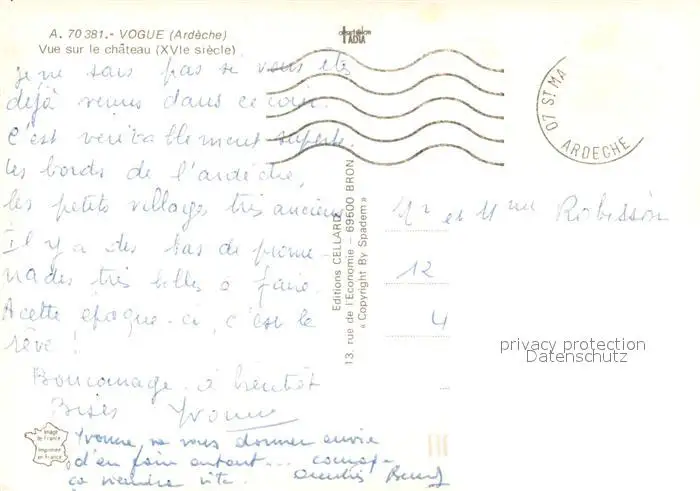 A. 70 381.- VOGUE (Ardèche)
Vue sur le château (XVIe siècle)
je ne sais pas si vous êtes
déjà venus dans ce coin.
C'est véritablement superbe.
Les bords de l'ardèche,
les petits villages très anciens
Il y a des tas de prome-
nades très belles à faire.
A cette époque-ci, c'est le
rêve !
Bon courage - à bientôt
Bises Yvonne
Yvonne va vous donner envie
d'en faire autant... courage
ça viendra vite.
Editions CELLARD
13, rue de l'Economie - 69500 BRON
« Copyright By Spadem »
07 ST MA
ARDECHE
Mr et Mme Robisson
12
4
privacy protection
Datenschutz
Imagé
de France
Imprimé
en France